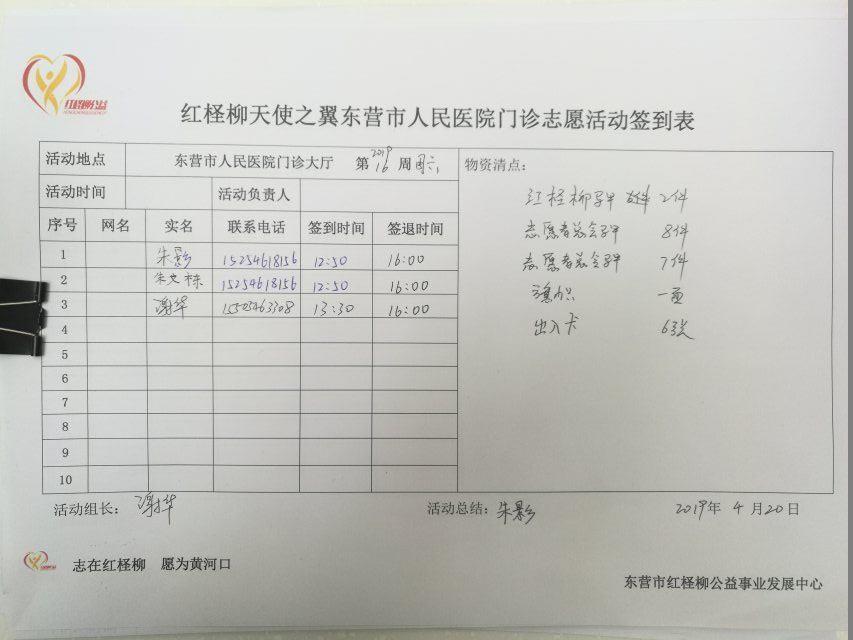 红柽柳公益
红柽柳天使之翼东营市人民医院门诊志愿活动签到表
活动地点 东营市人民医院门诊大厅 第 2019 16 周 周六 物资清点:
活动时间 活动负责人
序号 网名 实名 联系电话 签到时间 签退时间
1 朱影 15254618156 12:50 16:00
2 朱文栋 15254618156 12:50 16:00
3 谢华 15505463308 13:30 16:00
4
5
6
7
8
9
10
红柽柳 2件
志愿者总会 8件
志愿者总会 7件
旗帜 一面
出入卡 6张
活动组长: 谢华 活动总结: 朱影 2019年 4月20日
志在红柽柳 愿为黄河口
东营市红柽柳公益事业发展中心